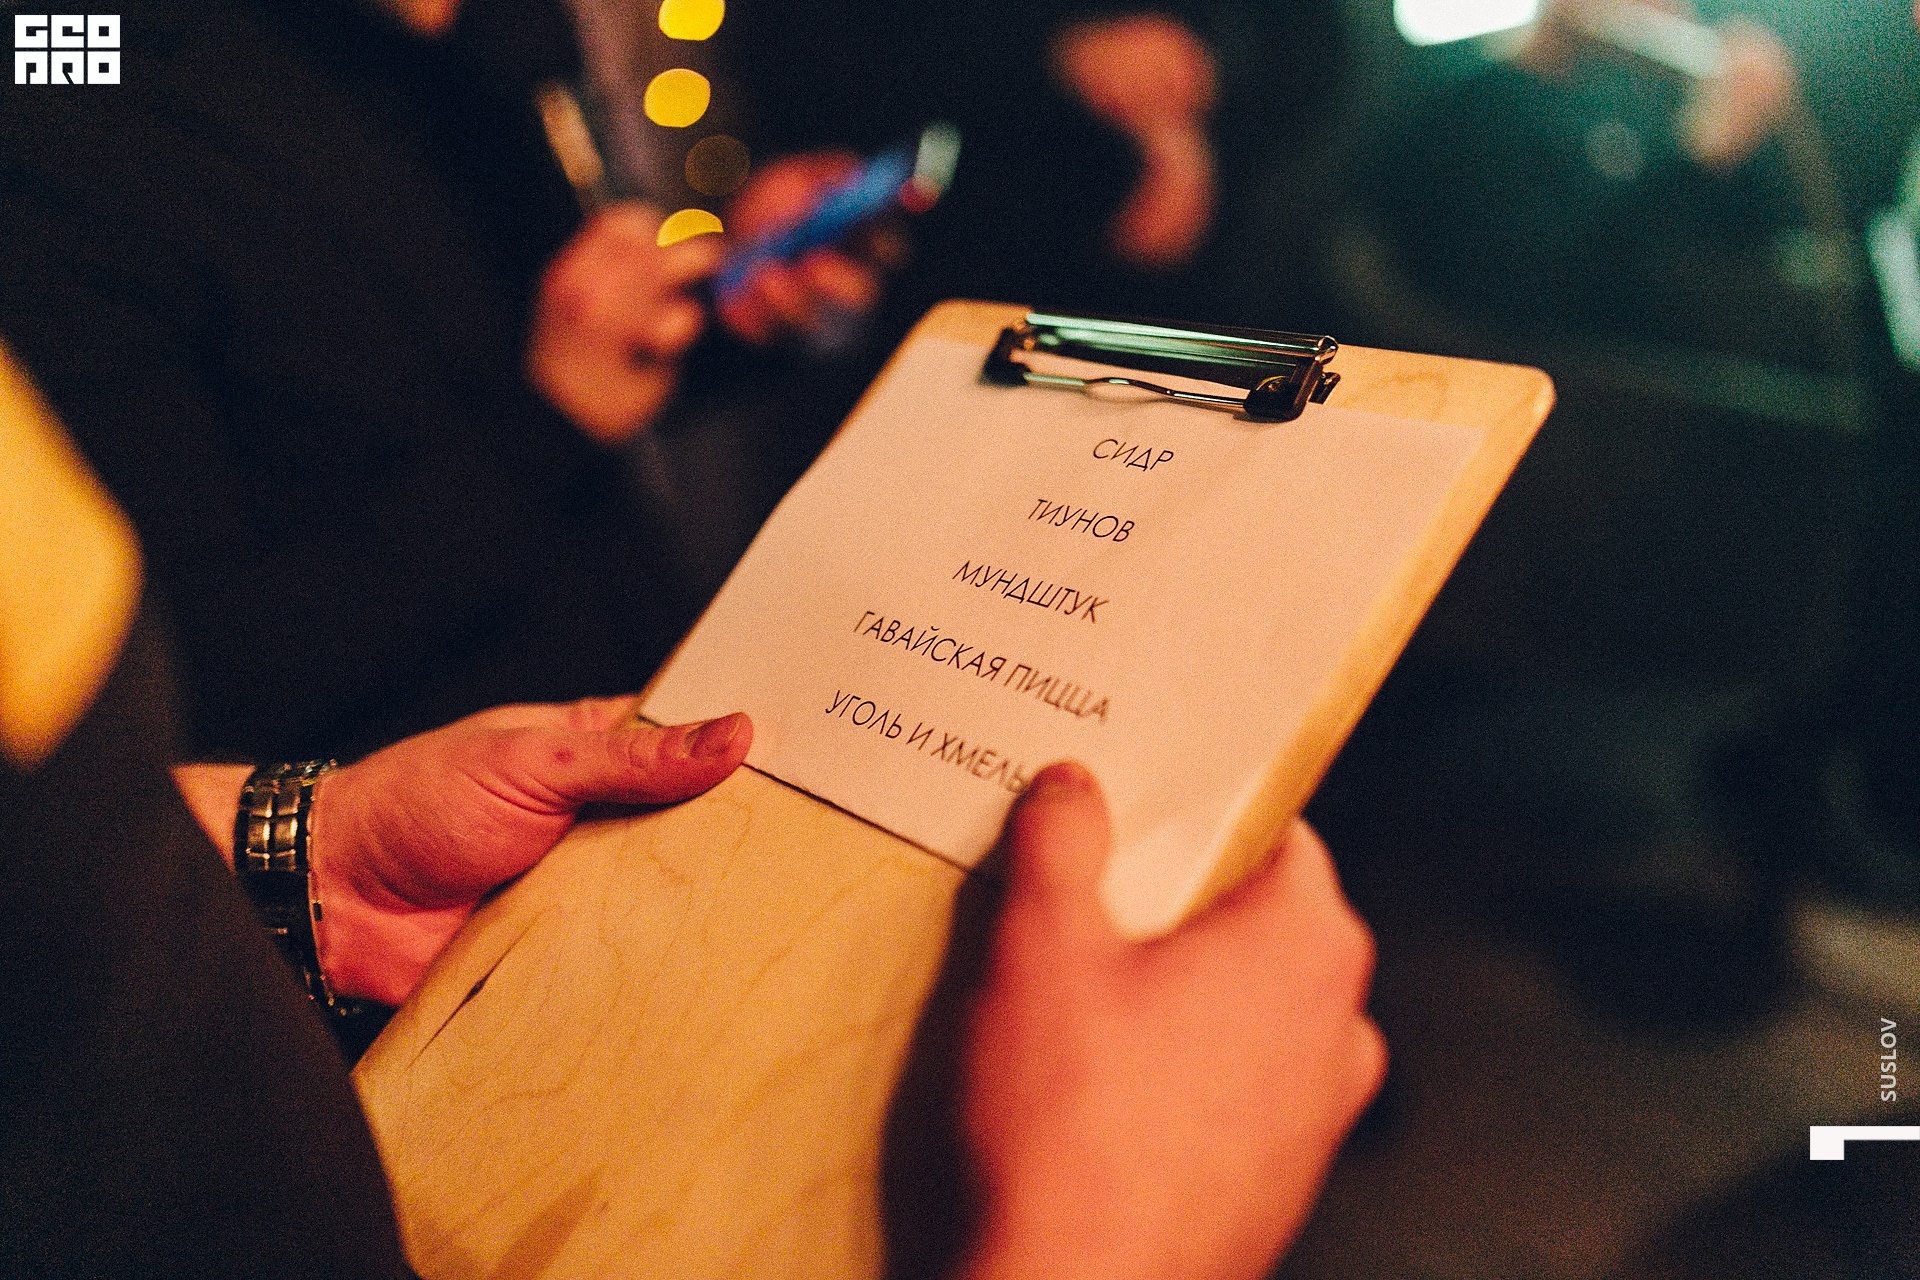 GEO
PRO
СИДР
ТИУНОВ
МУНДШТУК
ГАВАЙСКАЯ ПИЦЦА
УГОЛЬ И ХМЕЛЬ
SUSLOV